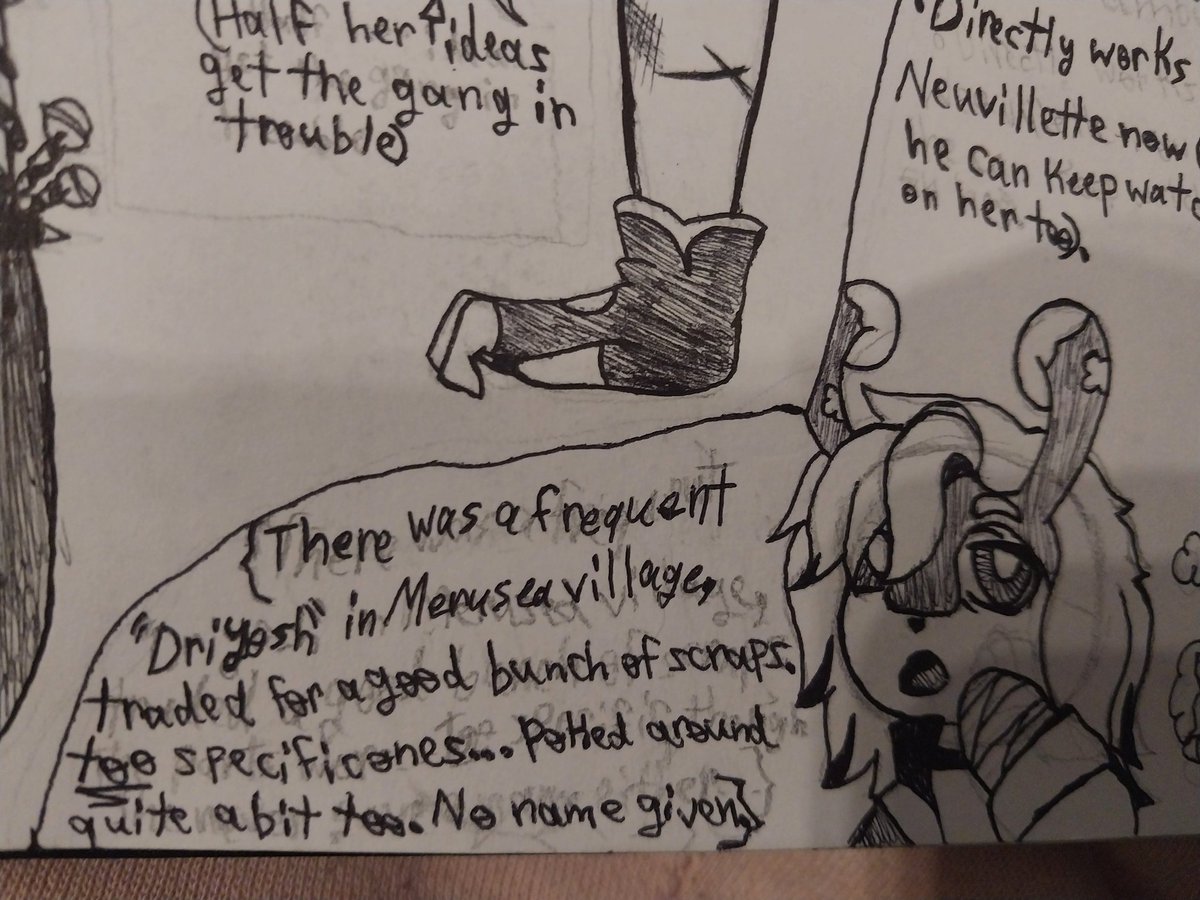 (Half her ideas
get the gang in
trouble)
"Directly works
Neuvillette now (
he can keep watc
on her too).
{There was a frequent
"Driyosh" in Merusea village,
traded for a good bunch of scraps.
too specific ones... Potted around
quite a bit too. No name given}